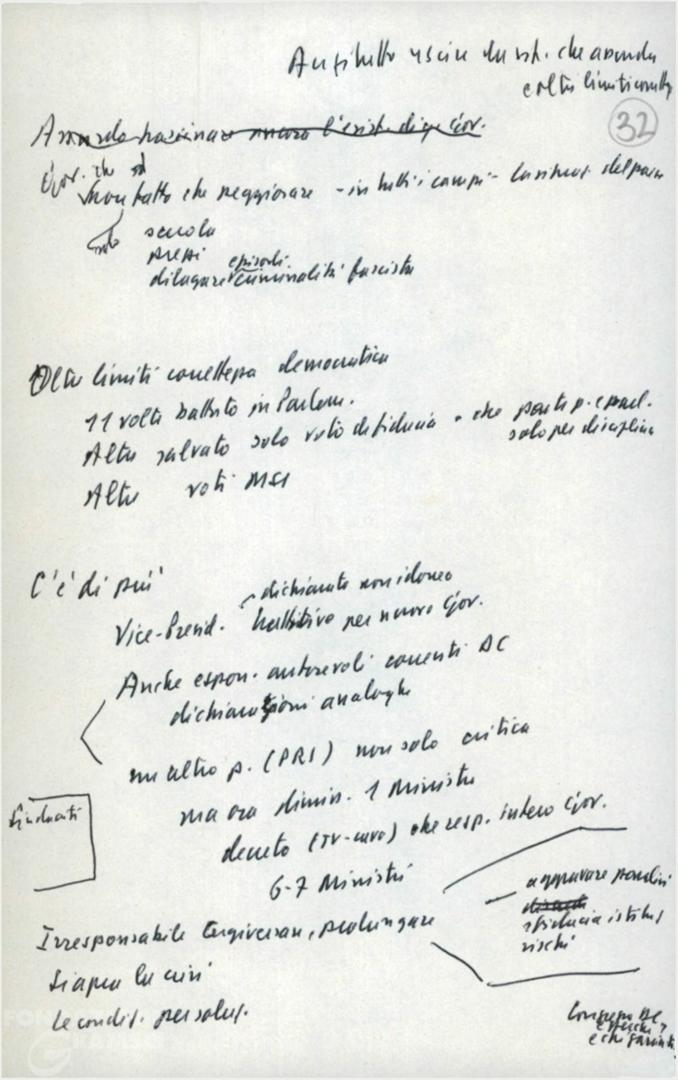 Anzitutto uscire da sit. che aromda
e oltre limiti corrett.
32
Assurdo trascinare ancora l'esist. di qu. Gov.
Gov. che
non ha fatto che peggiorare - in tutti i campi - la situaz. del paese
solo scuola
prezzi
episodi
dilagare criminalità fascista
Oltre limiti correttezza democratica
11 volte battuto in Parlam.
Altre salvato solo voto di fiducia - che parte p.
solo per disciplina
Altre voti MSI
C'è di più
dichiarato non idoneo
Vice-Presid. trattative per nuovo Gov.
Anche espon. autorevoli correnti DC
dichiarazioni analoghe
un altro p. (PRI) non solo critica
ma ora dimis. 1 Ministro
decreto (TV-cavo) che resp. intero Gov.
6-7 Ministri
Sindacati
aggravare
sfiducia istituz.
rischi
Irresponsabile tergiversare, prolungare
Si apra la crisi
le condiz. per soluz.
Congresso DC
e chi